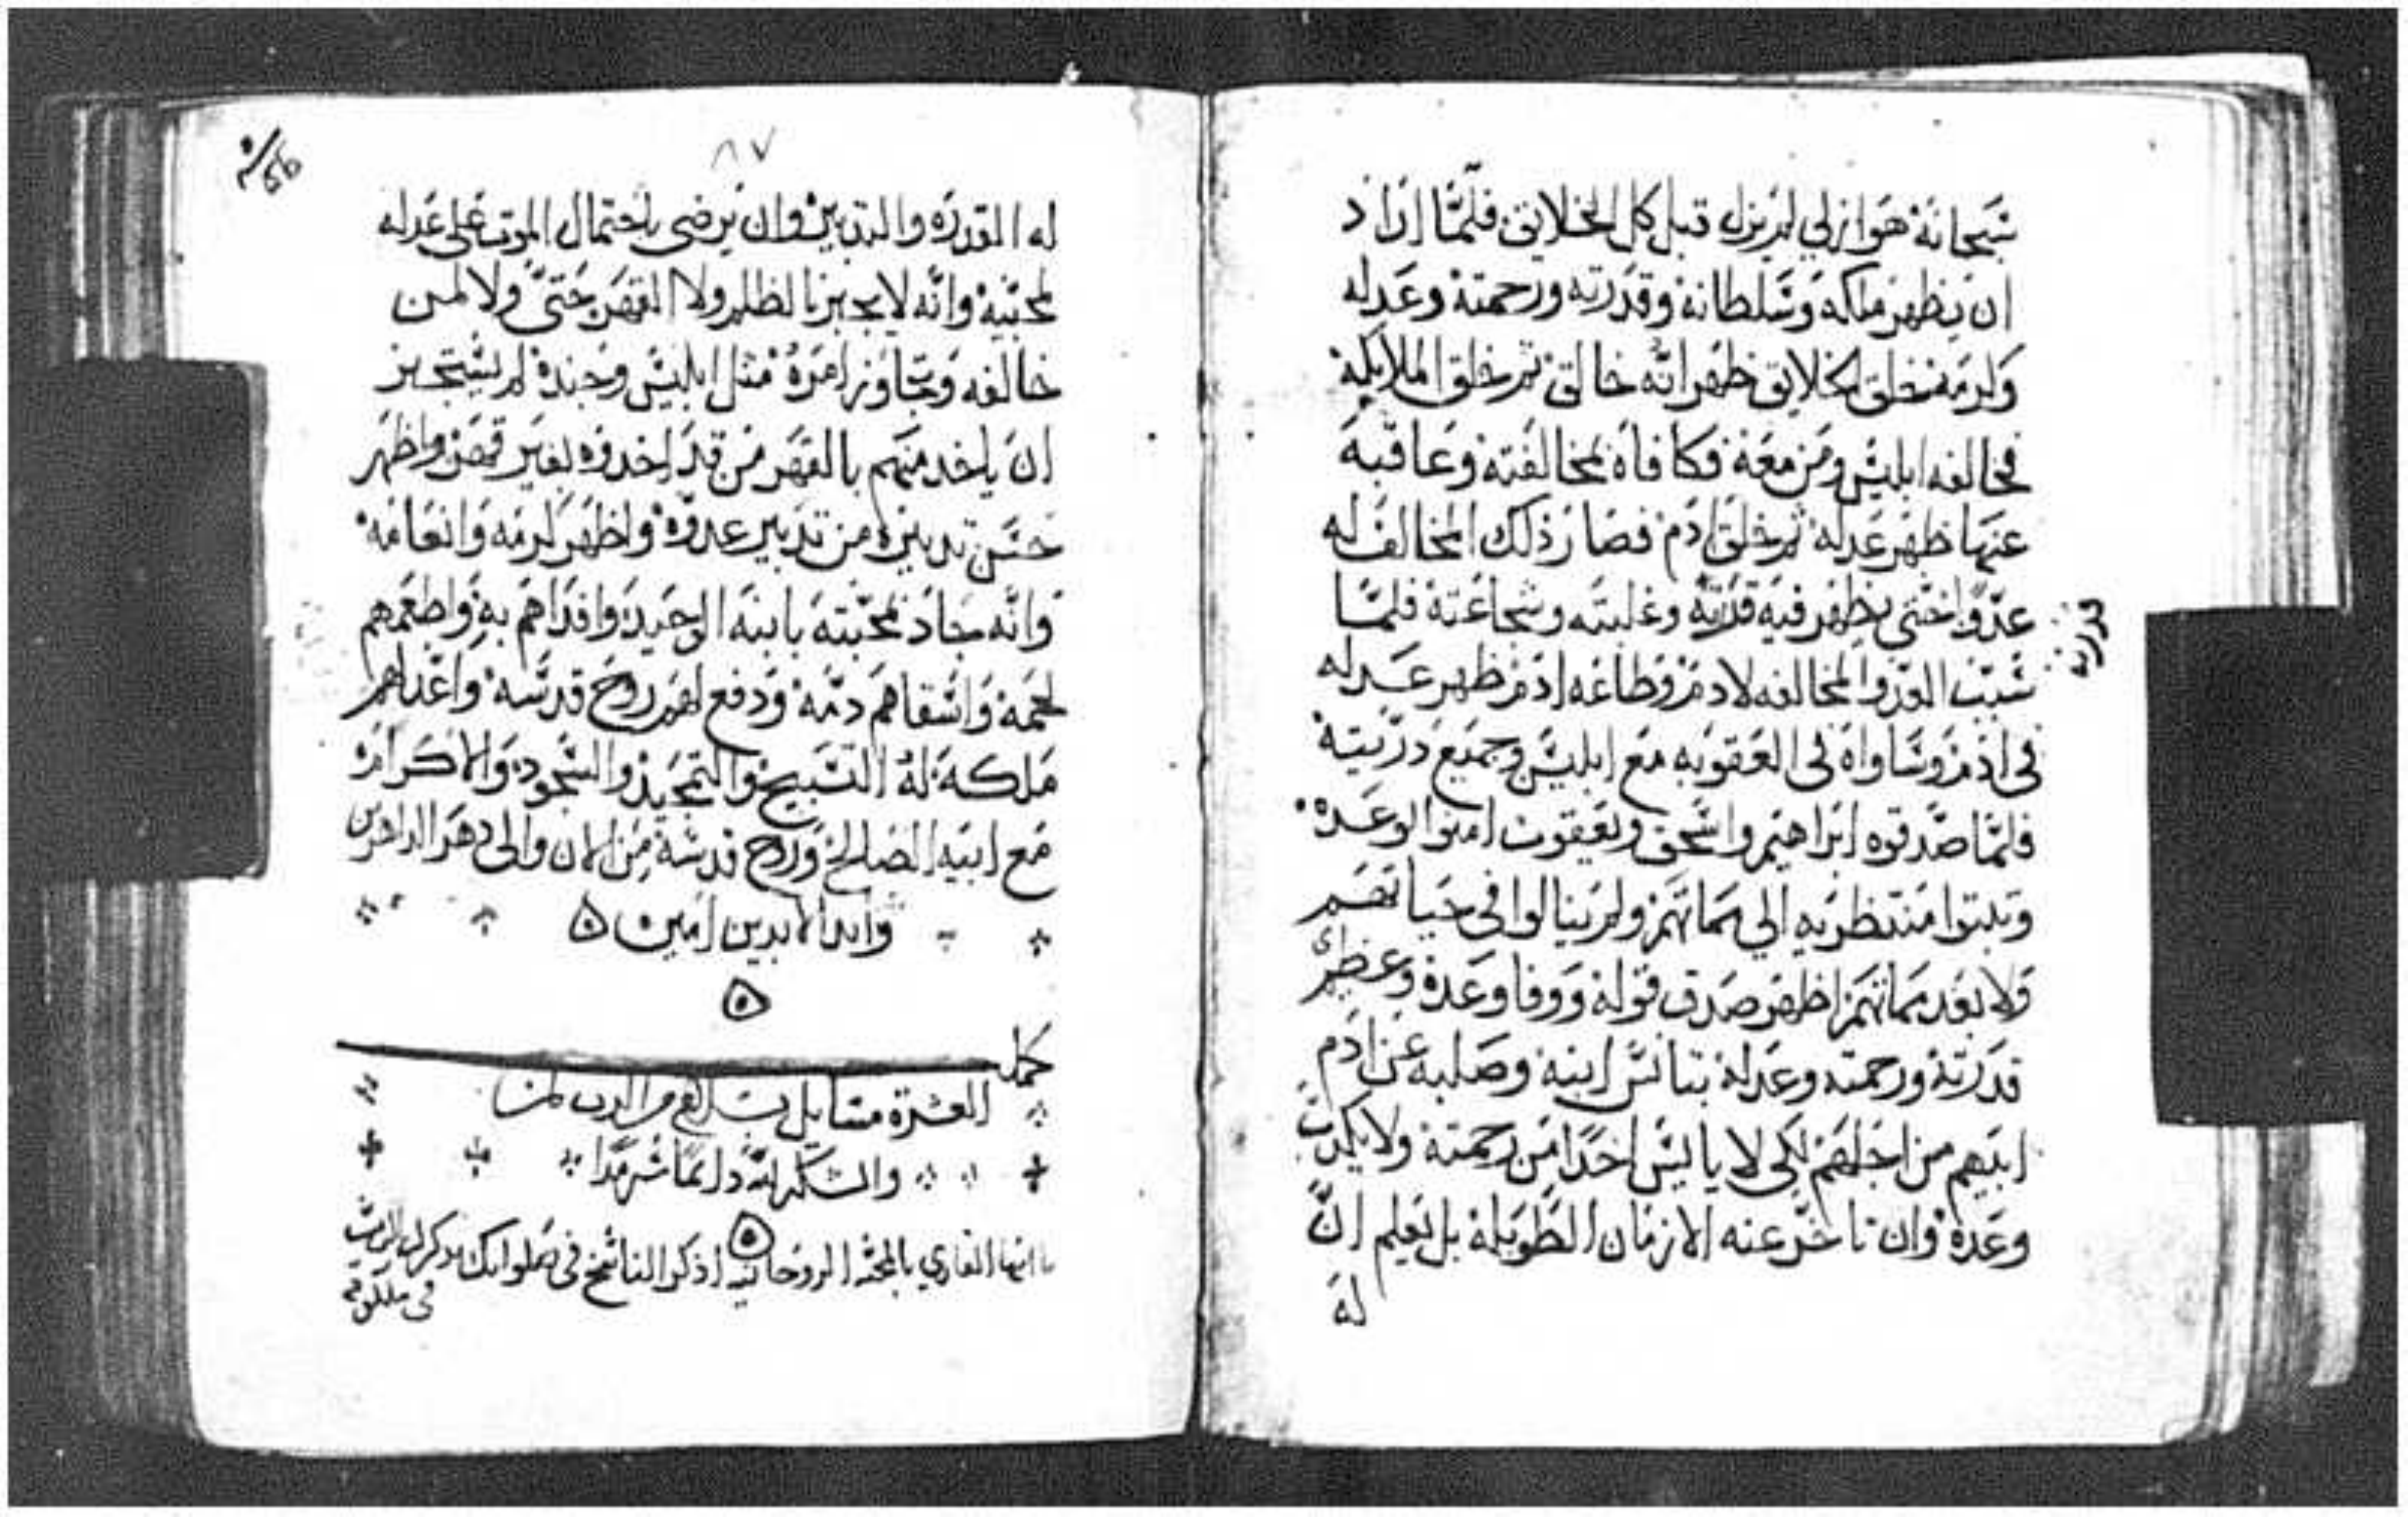 سبحانه هو ازلي لم يزل قبل كل الخلايق فلما اراد
ان يظهر ملكه وسلطانه وقدرته ورحمته وعدله
وكرمه فخلق الخلايق ظهر انه خالق ثم خلق الملايكه
فخالفه ابليس ومن معه فكافاه لمخالفته وعاقبه
عنها ظهر عدله ثم خلق ادم فصار ذلك المخالف له
عدوا حتى يظهر فيه قدرته وغلبته وشجاعته فلما
قدرته
سبب العدو المخالفه لادم وطاعه ادم ظهر عدله
في ادم وساواه في العقوبه مع ابليس وجميع دريته
فلما صدقوه ابراهيم واسحق ويعقوب امنوا لوعده
وتبتوا منتظريه الي مماتهم ولم ينالوا في حياتهم
ولا بعد مماتهم اظهر صدق قوله ووفا وعده وعظم
قدرته ورحمته وعدله بتانس ابنه وصلبه عن ادم
ابيهم من اجلهم لكي لا ياييس احدا من رحمته ولا يكدب
وعده وان تاخر عنه الازمان الطويله بل يعلم ان
له
٨٧
له القدره والتدبير وان يرضى باحتمال الموت على عدله
لمحبيه وانه لا يجبر بالظلم ولا القهر حتى ولا لمن
خالفه وتجاوز امره مثل ابليس وجنده لم يستجيز
ان ياخد منهم بالقهر من قد اخدوه بغير قهر واظهر
حسن تدبيره من تدبير عدوه واظهر كرمه وانعامه
وانه جاد لمحبته بابنه الوحيد وافداهم به واطعمهم
لحمه واسقاهم دمه ودفع لهم روح قدسه واعداهم
ملكه له التسبيح والتمجيد والسجود والاكرام
مع ابنه الصالح وروح قدسه من الان والى دهر الداهرين
وابد الابدين امين
كمل
العشرة مسايل بسلام من الرب
والشكر لله دايما سرمدا
يا ايها القاري بالمحبه الروحانيه اذكر الناسخ في صلواتك يدكرك الرب
في ملكوته